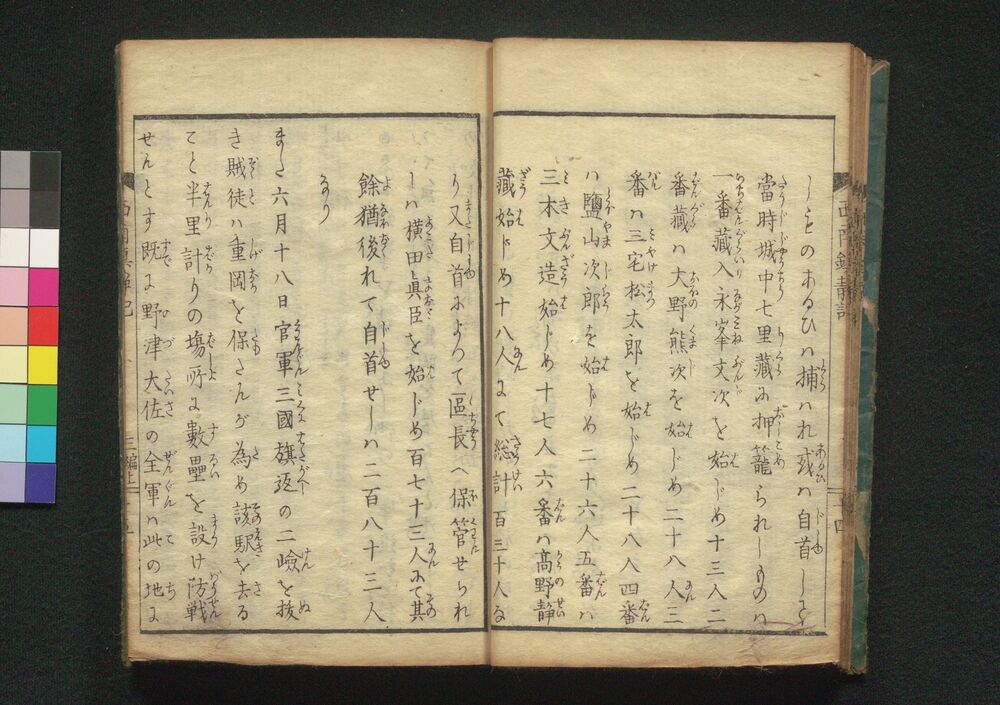 しものあるひハ捕ハれ或ハ自首しを
當時城中七里藏に押籠られしものハ
一番藏入永峯丈次を始じめ十三人二
番藏ハ大野熊次を始じめ二十八人三
番ハ三宅松太郎を始じめ二十八人四番
ハ鹽山次郎を始じめ二十六人五番ハ
三木文造始じめ十七人六番ハ髙野静
藏始じめ十八人にて総計百三十人な
り又自首によつて區長へ保管せられ
しハ横田眞臣を始じめ百七十三人にて其
餘猶後れて自首せしハ二百八十三人
なり
また六月十八日官軍三國旗返の二嶮を抜
き賊徒ハ重岡を保さんが為め該駅を去る
こと半里計りの塲所に數壘を設け防戦
せんとす既に野津大佐の全軍ハ此の地に
三編上